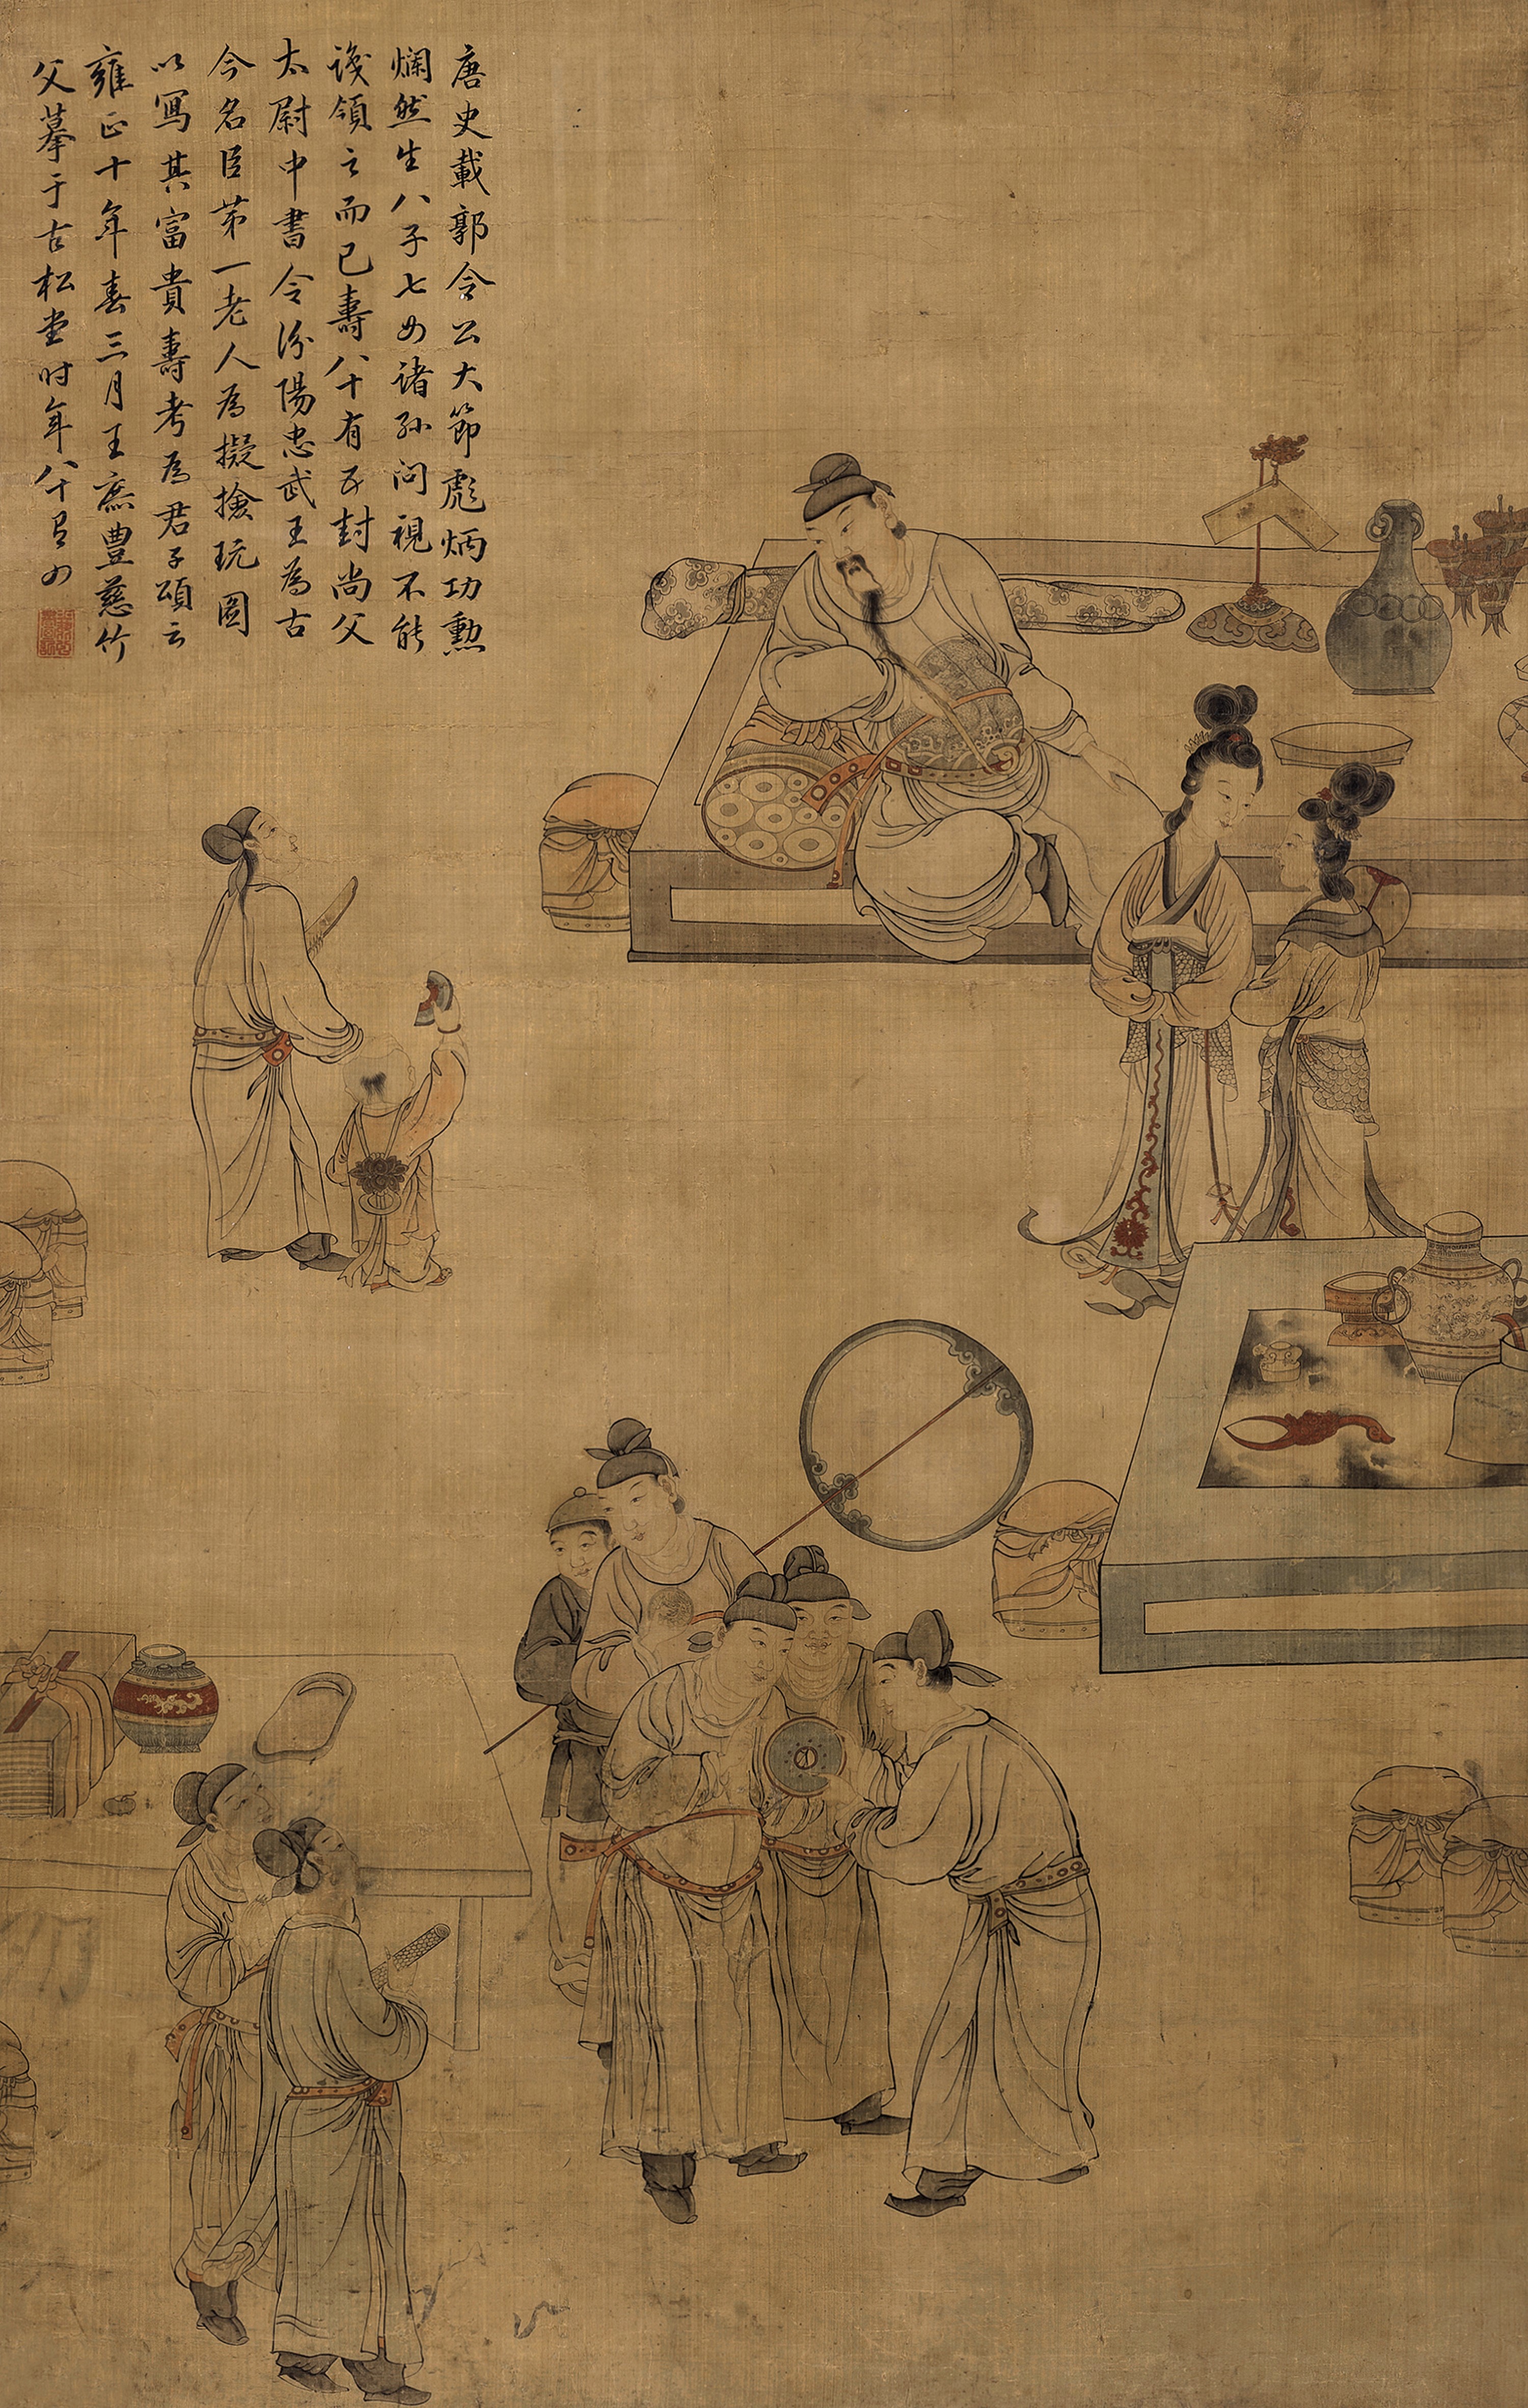 唐史載郭令公大節彪炳功勲
爛然生八子七女諸孙问視不能
識領之而已壽八十有五封尚父
太尉中書令汾陽忠武王為古
今名臣第一老人為擬撿玩圖
以寫其富貴壽考為君子頌云
雍正十年春三月王庶豊慈竹
父摹于古松堂时年八十有四